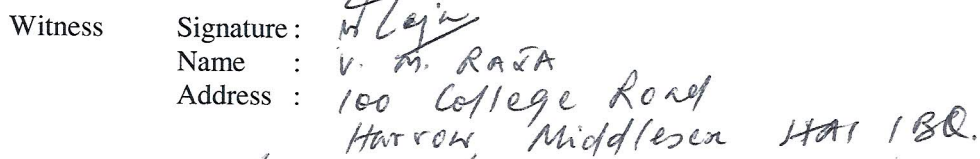 Witness Signature :
Name : V. M. RAJA
Address : 100 College Road
Harrow, Middlesex HA1 1BQ.